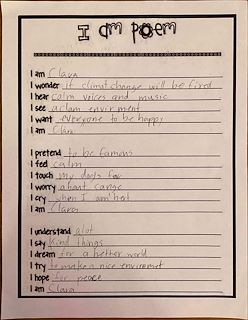 I am poem
I am Clara
I wonder if climat change will be fixed
I hear calm voices and music
I see a clam envirment
I want everyone to be happy
I am Clara
I pretend to be famous
I feel calm
I touch my dogs fur
I worry about
I cry when I am hert
I am Clara
I understand alot
I say kind things
I dream for a better world
I try to make a nice enviremet
I hope for peace
I am Clara